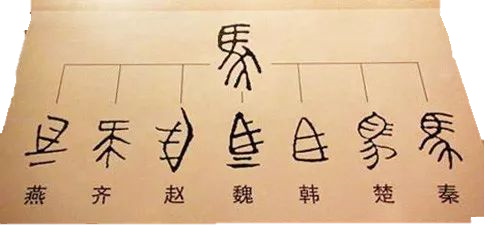 馬
燕 齐 赵 魏 韩 楚 秦